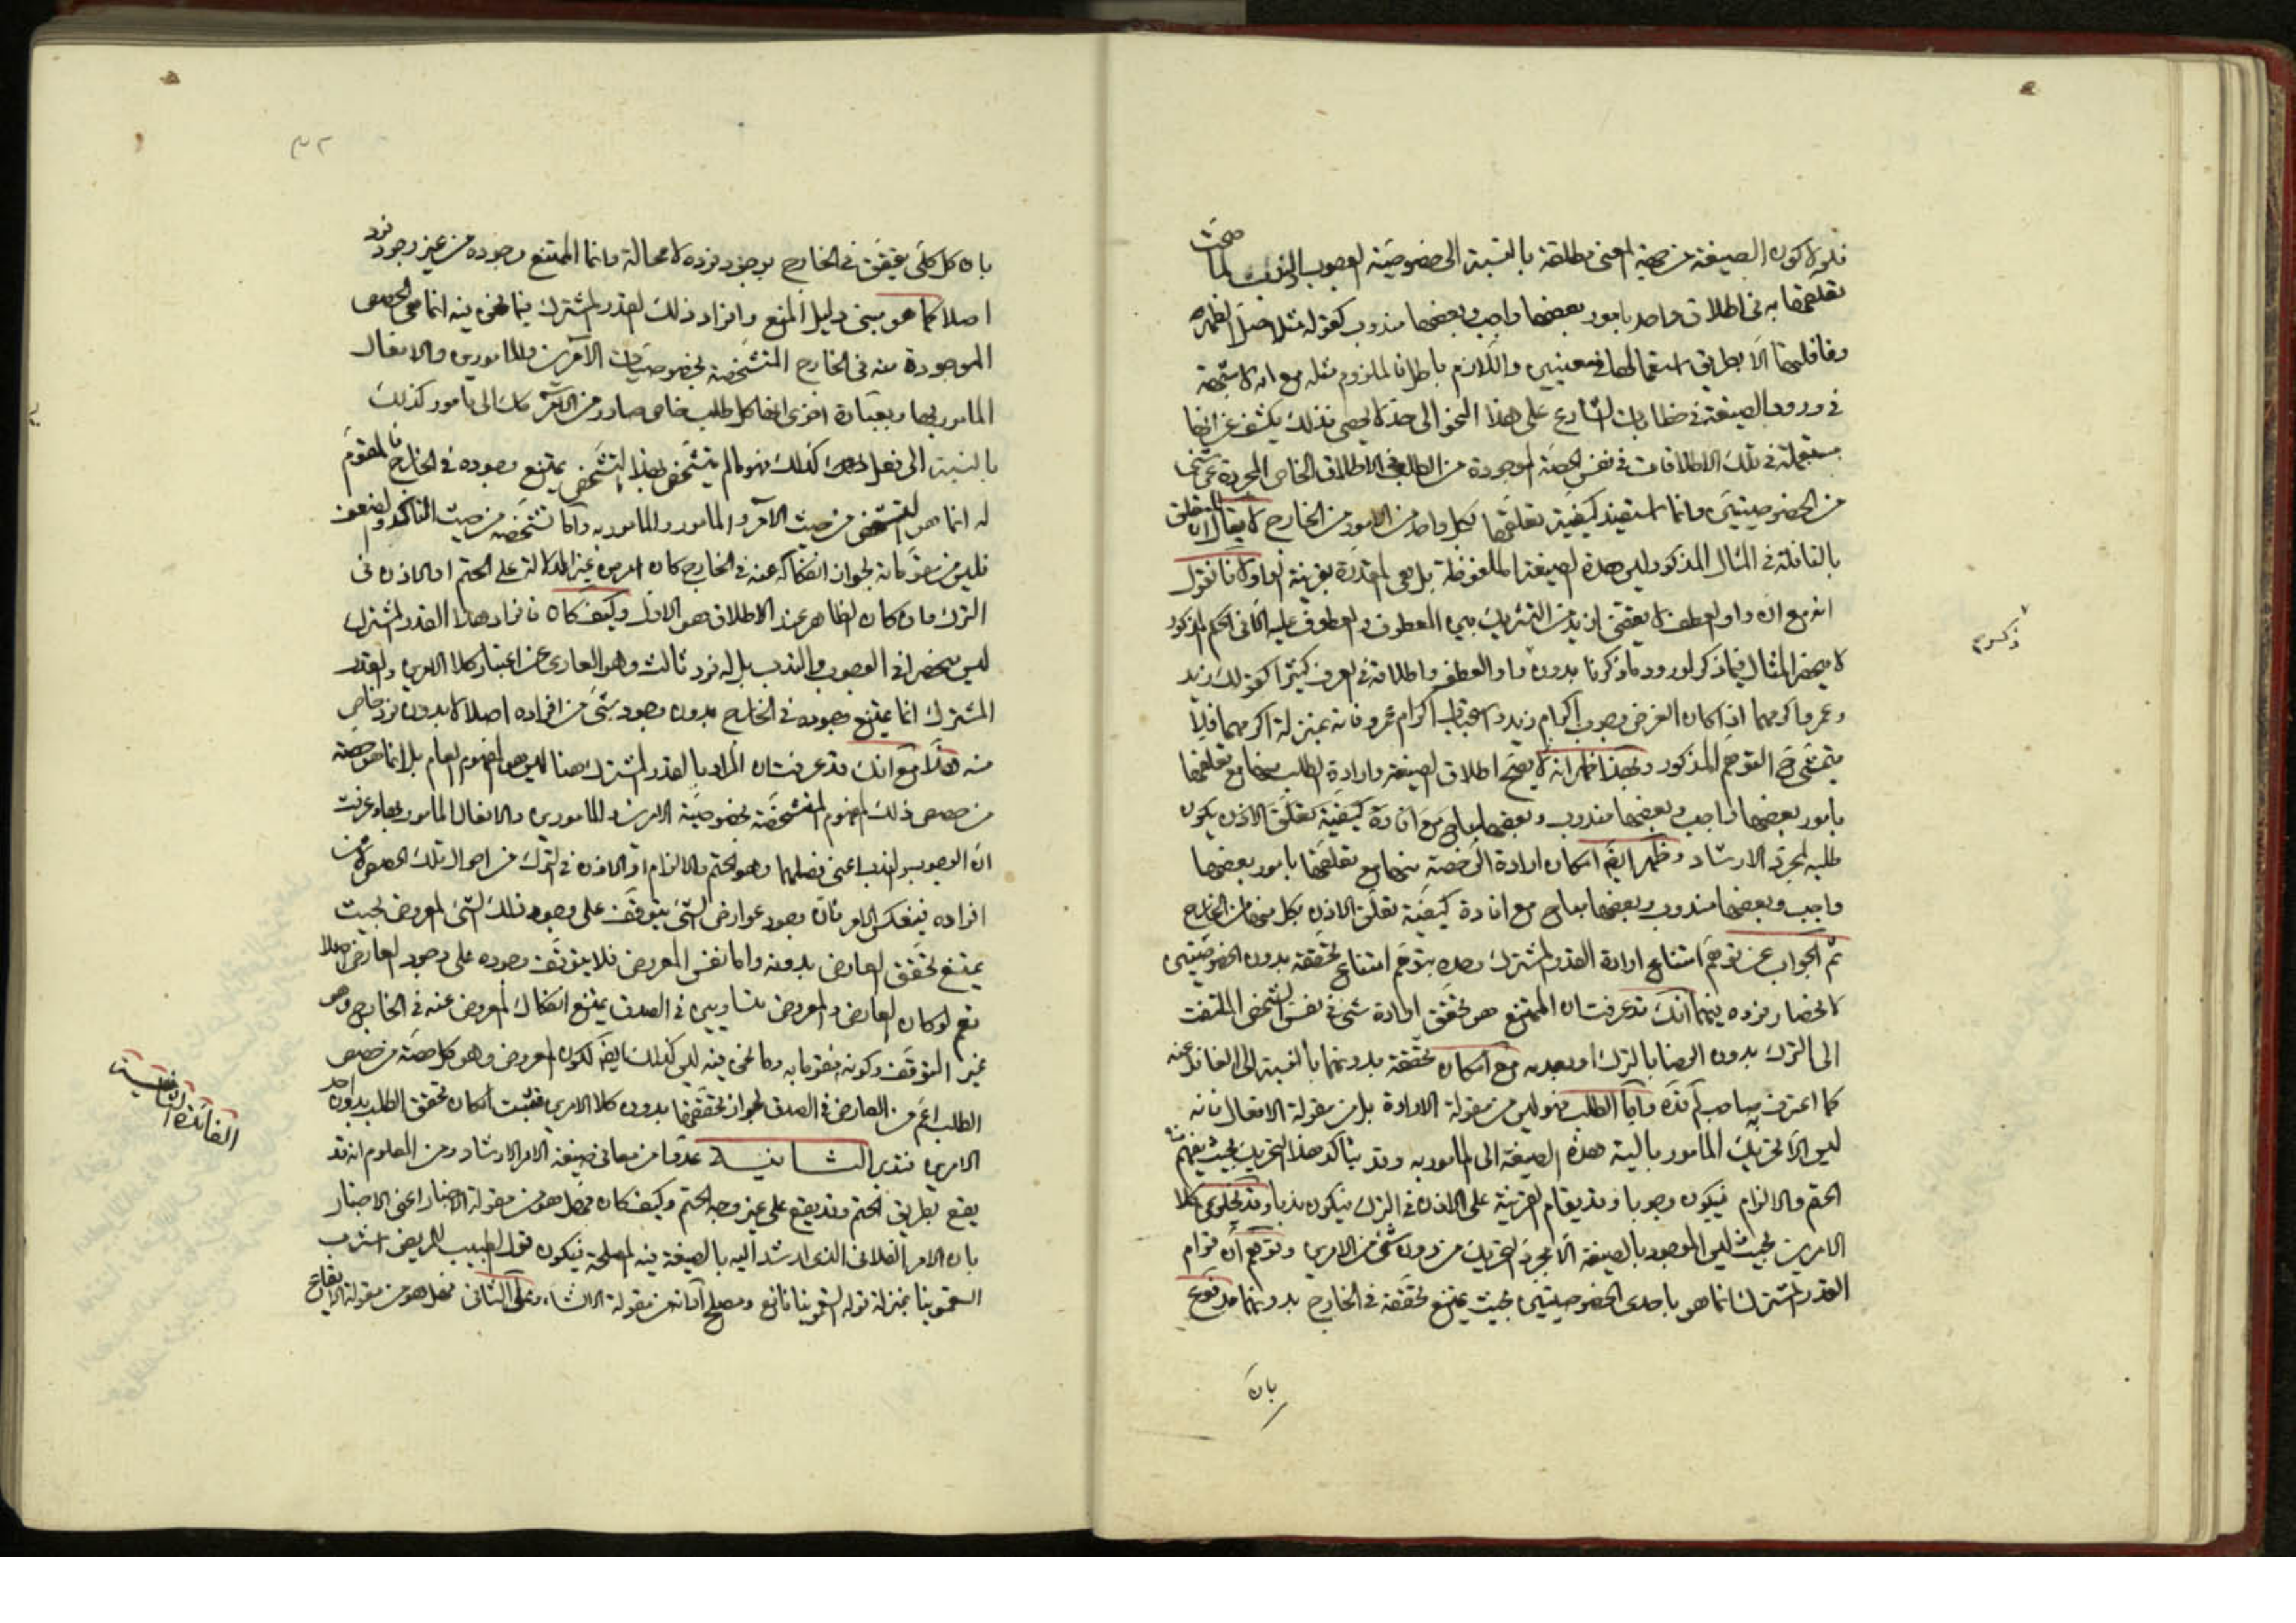 فلو لا كون الصيغة من جهة المعنى مطلقة بالنسبة الى خصوصية الوجوب والندب لما صحت
تعلقها به في اطلاق واحد بامور بعضها واجب وبعضها مندوب كقوله مثلا صل الظهر
ونافلتها الا بطريق استعمالها في معنيين واللازم باطل فالملزوم مثله مع انه لا شبهة
في ورود الصيغة في خطابات الشارع على هذا النحو الى حد لا يحصى فذلك يكشف عن انها
مستعملة في تلك الاطلاقات في نفس الحصة الموجودة من الطلب في الاطلاق الخاص المجردة عن
من الخصوصيتين وانما استفيد كيفية تعلقها بكل واحد من الامور من الخارج لا يقال ان المتعلق
بالنافلة في المثال المذكور ليس هذه الصيغة الملفوظة بل هي المقدرة بقرينة الواو لانا نقول
انه مع ان واو العطف لا يقتضى ازيد من التشريك بين المعطوف والمعطوف عليه في الحكم المذكور
لا ينحصر المثال فيما ذكر لورود ما ذكرنا بدون واو العطف واطلاقه في العرف كثيرا كقولك زيد
وعمرو اكرمهما اذا كان الغرض وجوب اكرام زيد واستحباب اكرام عمرو فانه بمنزلة اكرمهما فلا
يتمشى فيه التوهم المذكور وبهذا ظهر انه لا يصح اطلاق الصيغة وارادة الطلب منها مع تعلقها
بامور بعضها واجب وبعضها مندوب وبعضها مباح مع افادة كيفية تعلق الاذن بكون
طلبه لمجرد الارشاد وظهر ايضا امكان ارادة الرخصة منها مع تعلقها بامور بعضها
واجب وبعضها مندوب وبعضها مباح مع افادة كيفية تعلق الاذن بكل منها من الخارج
ثم الجواب عن توهم امتناع ارادة القدر المشترك وحده بتوهم امتناع تحققه بدون الخصوصيتين
لانحصار فرده فيهما انك قد عرفت ان الممتنع هو تحقق ارادة شئ في نفس الشخص الملتفت
الى الترك بدون الرضا بالترك او بعدمه مع امكان تحققه بدونهما بالنسبة الى الغافل عنه
كما اعترف به صاحب لم قده واما الطلب فهو ليس من مقولة الارادة بل من مقولة الافعال فانه
ليس الا تحريك المأمور بالية هذه الصيغة الى المأمور به وقد يتأكد هذا التحريك بحيث يفهم منه
الحتم والالزام فيكون وجوبا وقد يقام القرينة على الاذن في الترك فيكون ندبا وقد يخلو عن كلا
الامرين بحيث ليس الموجود بالصيغة الا مجرد التحريك من دون شئ من الامرين وتوهم ان قوام
القدر المشترك انما هو باحدى الخصوصيتين بحيث يمتنع تحققه في الخارج بدونهما مدفوع
بان
ذكره
٣٢
بان كل كلى يتحقق في الخارج بوجود فرده لا محالة وانما الممتنع وجوده من غير وجود فرد
اصلا كما هو مبنى دليل المنع وافراد ذلك القدر المشترك فيما نحن فيه انما هى الحصص
الموجودة منه في الخارج المتشخصة بخصوصيات الآمرين والمأمورين والافعال
المأمور بها وبعبارة اخرى انها كل طلب خاص صادر من الآمر كك الى مأمور كذلك
بالنسبة الى فعل كذلك فهو ما لم يتشخص بهذا التشخص يمتنع وجوده في الخارج فالمقوم
له انما هو التشخص من حيث الآمر والمأمور والمأمور به واما تشخصه من حيث التأكد والضعف
فليس من مقوماته لجواز انفكاكه عنه في الخارج كان امر من غير الدلالة على الحتم او الاذن في
الترك وان كان الظاهر عند الاطلاق هو الاول وكيف كان فافراد هذا القدر المشترك
ليس منحصرا في الوجوب والندب بل له فرد ثالث وهو العارى عن اعتبار كلا الامرين والقدر
المشترك انما يمتنع وجوده في الخارج بدون وجود شئ من افراده اصلا لا بدون فرد خاص
منه هذا مع انك قد عرفت ان المراد بالقدر المشترك هنا ليس هو المفهوم العام بل انما هو حصة
من حصص ذلك المفهوم المتشخصة بخصوصية الآمرين والمأمورين والافعال المأمور بها وعرفت
ان الوجوب والندب اعنى فصليهما وهو الحتم والالزام او الاذن في الترك من احوال تلك الحصص لا من
افراده فينعكس الامر فان وجود عوارض الشئ يتوقف على وجود ذلك الشئ المعروض بحيث
يمتنع تحقق العارض بدونه واما نفس المعروض فلا يتوقف وجوده على وجود العارض اصلا
نعم لو كان العارض والمعروض متساويين في الصدق يمتنع انفكاك المعروض عنه في الخارج وهو
غير التوقف وكونه مقوما به وما نحن فيه ليس كذلك ايضا لكون المعروض وهو كل حصة من حصص
الطلب اعم من العارض في الصدق لجواز تحققها بدون كلا الامرين فثبت امكان تحقق الطلب بدون احد
الامرين فتدبر الثانية عدوا من معانى صيغة الامر الارشاد ومن المعلوم انه قد
يقع بطريق الحتم وقد يقع على غير وجه الحتم وكيف كان فهل هو من مقولة الاخبار اعنى الاخبار
بان الامر الفلانى الذى ارشد اليه بالصيغة فيه المصلحة فيكون قول الطبيب للمريض اشرب
السقمونيا بمنزلة قوله السقمونيا نافع ومصلح او انه من مقولة الانشاء وعلى الثانى فهل هو من مقولة الايقاع
الفائدة الثانية